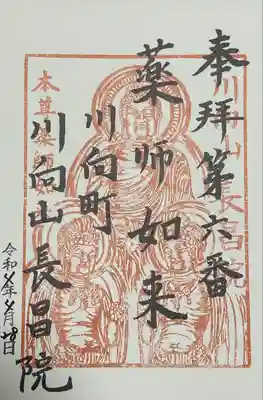 奉拝第六番
薬師如来
川向町
川向山長昌院
令和
年
月
日
川向山長昌院
本尊薬師